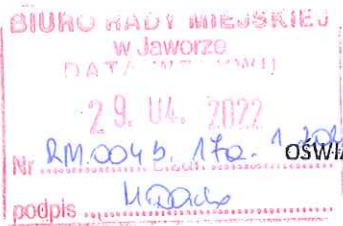 BIURO RADY MIEJSKIEJ
w Jaworze
DATA
29. 04. 2022
Nr RM.0045.170.1 OŚWIA
podpis